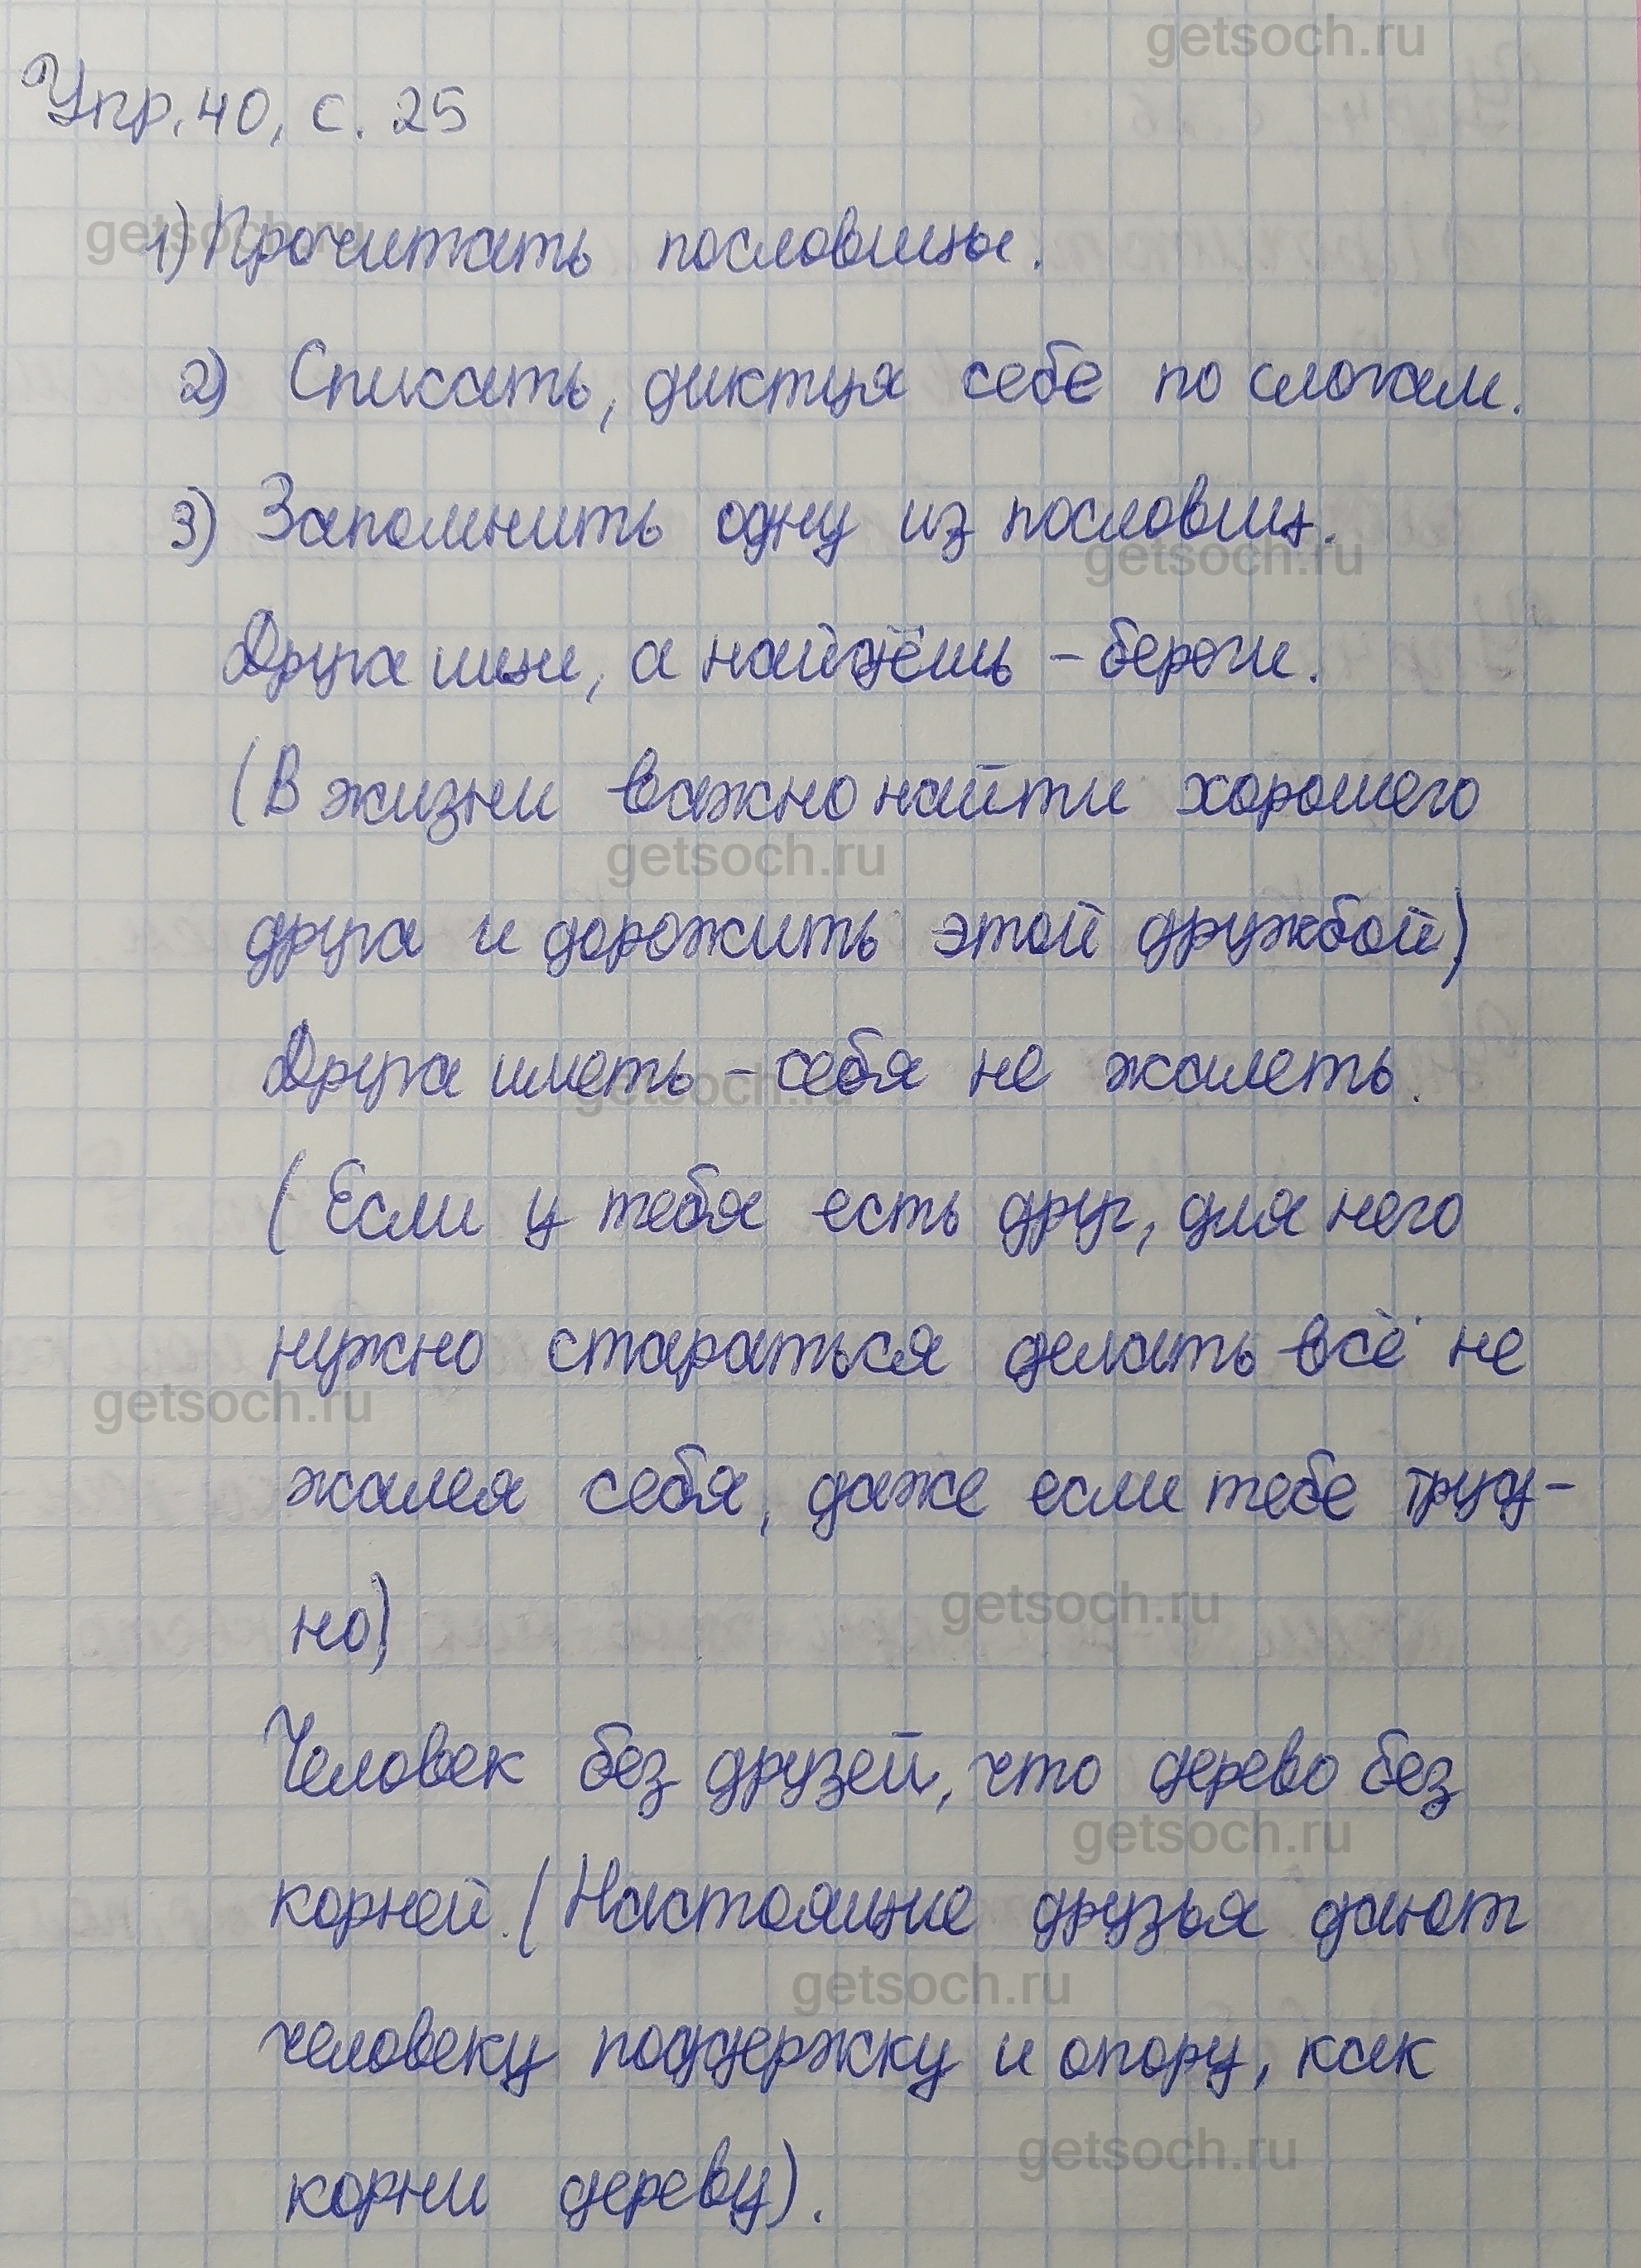 getsoch.ru
Упр. 40, с. 25
getsoch.ru
1) Прочитать пословицы.
2) Списать, диктуя себе по слогам.
3) Запомнить одну из пословиц.
getsoch.ru
Друга ищи, а найдёшь - береги.
(В жизни важно найти хорошего
getsoch.ru
друга и дорожить этой дружбой)
Друга иметь - себя не жалеть.
getsoch.ru
(Если у тебя есть друг, для него
нужно стараться делать всё не
getsoch.ru
жалея себя, даже если тебе труд-
но)
getsoch.ru
Человек без друзей, что дерево без
getsoch.ru
корней. (Настоящие друзья дают
getsoch.ru
человеку поддержку и опору, как
getsoch.ru
корни дереву).